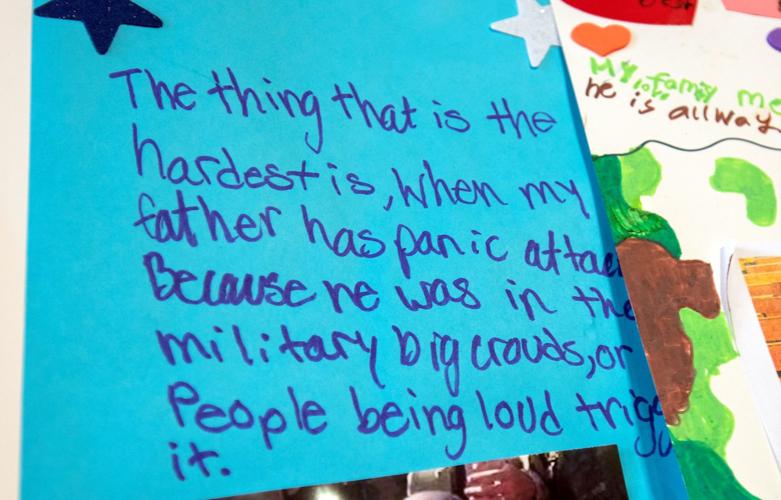 The thing that is the
hardest is, when my
father has panic attac
Because he was in the
military big crouds, or
People being loud trigg
it.
My family me
he is allway